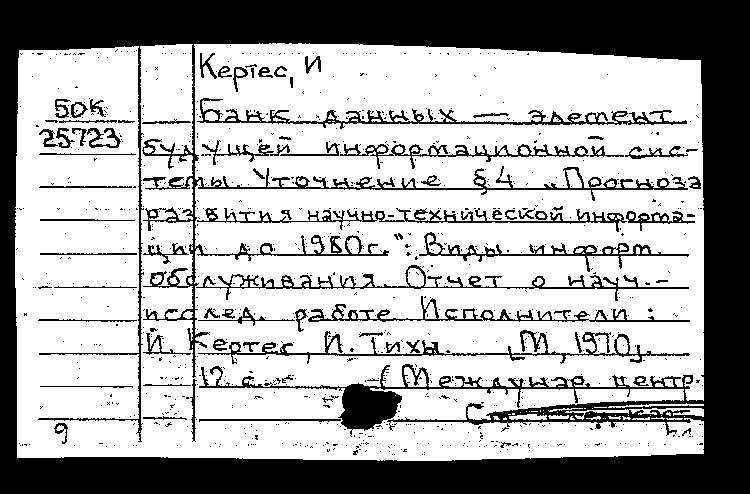 Кертес, И
БОК
Банк данных — элемент
25723
будущей информационной сис-
темы. Уточнение §4 „Прогноза
развития научно-технической информа-
ции до 1980г.": Виды информ.
обслуживания. Отчет о науч.-
исслед. работе Исполнители:
Й. Кертес, И. Тихы. [М., 1970].
12 с. — (Междунар. центр.
9